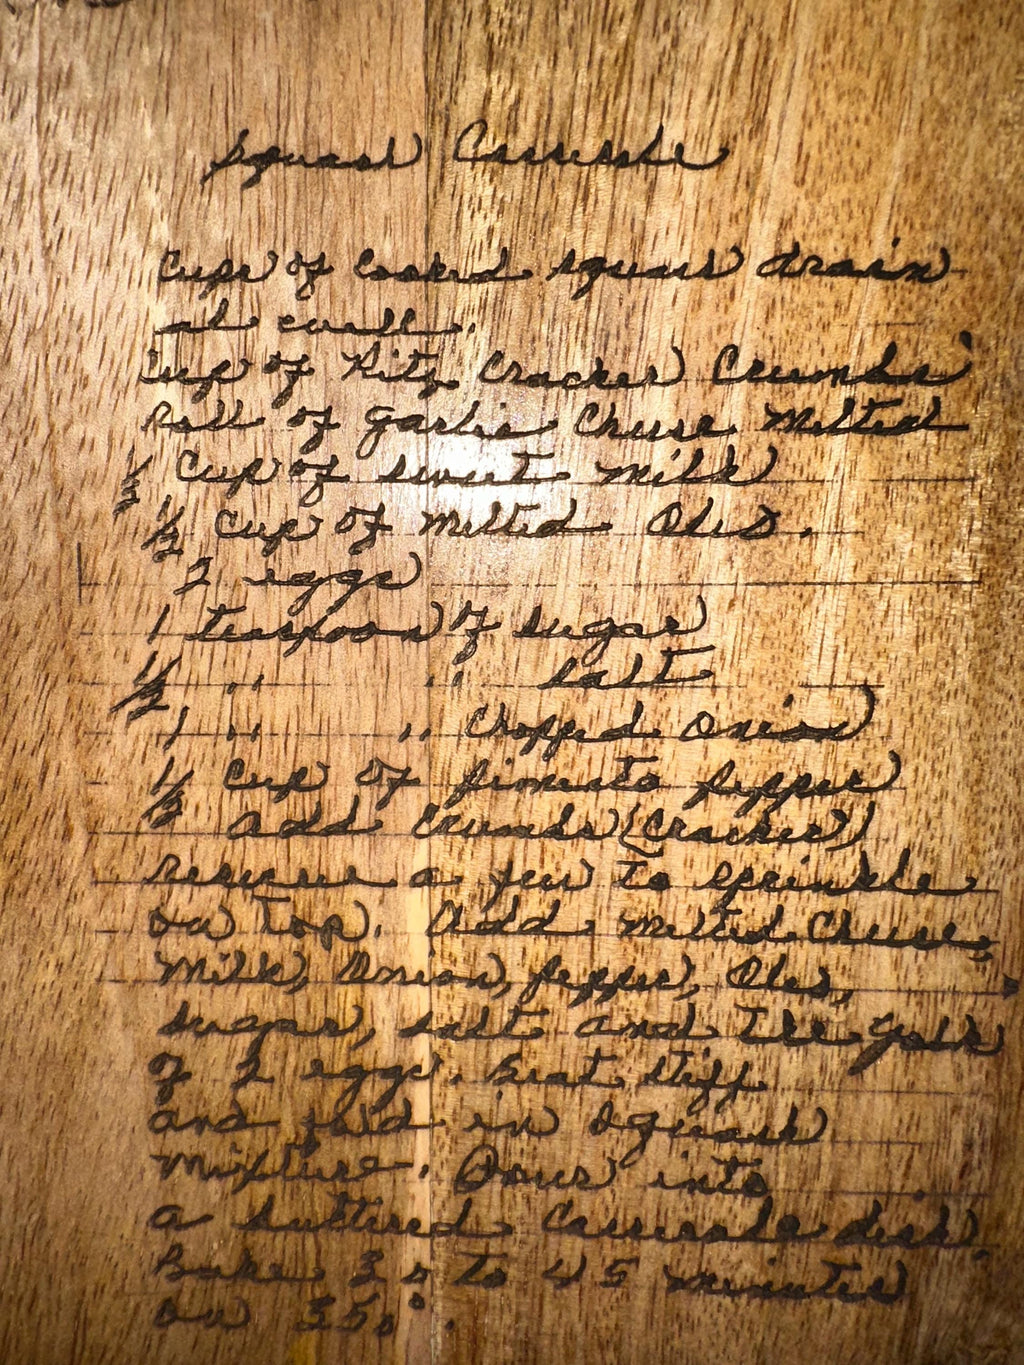 Squash Casserole
Cups of Cooked squash drain
at well.
Cup of Ritz Cracker Crumbs
Roll of garlic Cheese Melted
1/2 Cup of sweet Milk
1/2 Cup of Melted Oleo.
2 eggs
1 teaspoon of sugar
1/2 " " salt
1 " " Chopped Onion
1/2 Cup of pimento pepper
add Crumbs (Cracker)
reserve a few to sprinkle
on top. Add Melted Cheese,
Milk, Onion, pepper, Oleo,
sugar, salt and the yolk
of 2 eggs. Beat stiff
and fold in squash
Mixture. Pour into
a buttered Casserole dish.
Bake 30 to 45 minutes
on 350°.